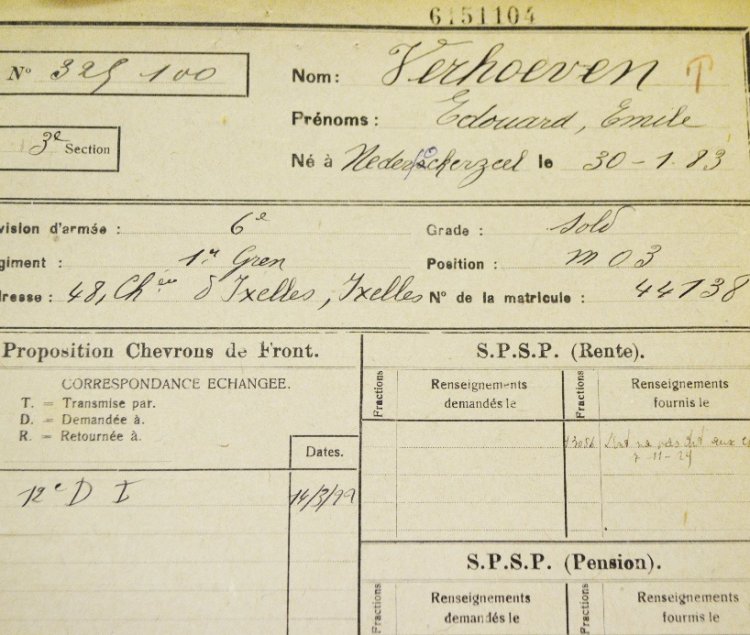 6151104
N° 325 100
Nom: Verhoeven T
Prénoms: Edouard, Emile
3e Section
Né à le 30-1.83
vision d'armée: 6e
Grade: Sold
giment: 1er Gren
Position: m 03
resse: 48, Ch ée d'Ixelles, Ixelles
N° de la matricule: 44138
Proposition Chevrons de Front.
CORRESPONDANCE ECHANGEE.
T. = Transmise par.
D. = Demandée à.
R. = Retournée à.
Dates.
12e D I 14/3/
S.P.S.P. (Rente).
Fractions
Renseignements
demandés le
Fractions
Renseignements
fournis le
S.P.S.P. (Pension).
Fractions
Renseignements
demandés le
Fractions
Renseignements
fournis le